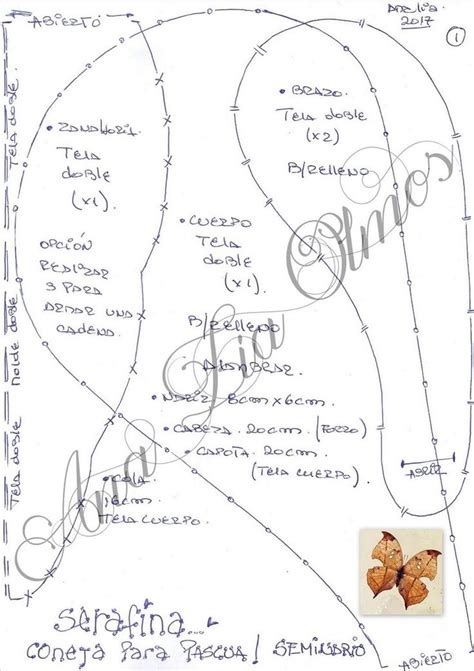 ABIERTO
Analia
2017
1
Tela doble
molde doble
Tela doble
• ZANAHORIA
TELA
doble
(x1)
OPCIÓN
REALIZAR
3 PARA
ARMAR UNA
CADENA.
• BRAZO
TELA doble
(x2)
B/RELLENO
• CUERPO
TELA
doble
(x1).
B/RELLENO
ALAMBRAR
• NARIZ 8cm x 6cm
• CABEZA. 20cm. (FORRO)
• CAPOTA. 20cm.
(TELA CUERPO)
• COLA
16cm
TELA CUERPO.
ABRIR
Ana Lia Olmos
Serafina...
CONEJA PARA PASCUA / SEMINARIO
ABIERTO